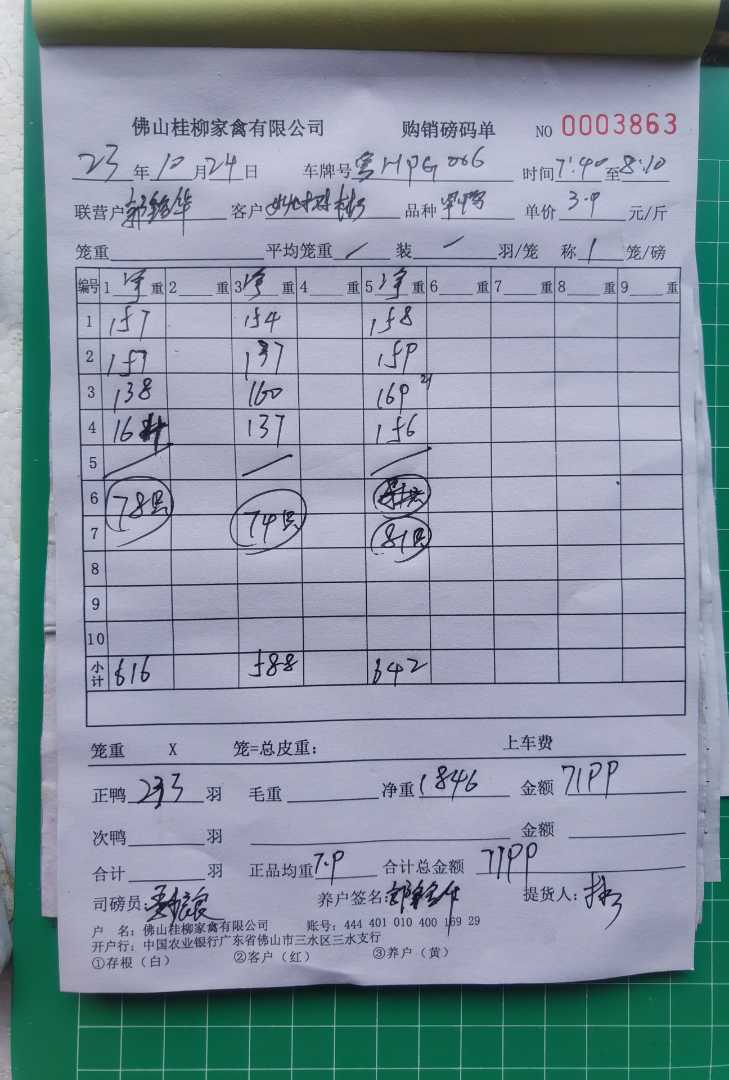 佛山桂柳家禽有限公司 购销磅码单 NO 0003863
23 年 10 月 24 日 车牌号 HPG 066 时间 7:40 至 8:10
联营户 郭锦华 客户 品种 单价 3.9 元/斤
笼重 平均笼重 / 装 / 羽/笼 称 1 笼/磅
编号 1 净 重 2 重 3 净 重 4 重 5 净 重 6 重 7 重 8 重 9 重
1 157 154 158
2 157 137 159
3 138 160 169
4 164 137 156
5 / / /
6 78只 74只
7 81只
8
9
10
小计 616 588 642
笼重 X 笼=总皮重: 上车费
正鸭 233 羽 毛重 净重 1846 金额 7199
次鸭 羽 金额
合计 羽 正品均重 7.9 合计总金额 7199
司磅员: 养户签名: 郭锦华 提货人:
户 名: 佛山桂柳家禽有限公司 账号: 444 401 010 400 169 29
开户行: 中国农业银行广东省佛山市三水区三水支行
①存根(白) ②客户(红) ③养户(黄)